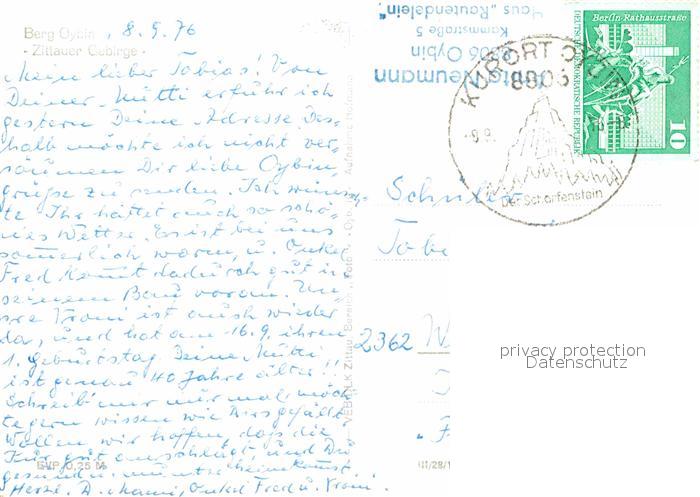 Berg Oybin, 8.9.76
- Zittauer Gebirge -
Mein lieber Tobias! Von
Deiner Mutti erfuhr ich
gestern Deine Adresse. Des-
halb möchte ich nicht ver-
säumen Dir liebe Oybin-
grüße zu senden. Ich wünsch-
te Ihr hättet auch so schö-
nes Wetter. Es ist bei uns
sommerlich warm, u. Onkel
Fred kommt dadurch gut in
seinem Bau voran. Un-
sre Vroni ist auch wieder
da, und hat am 16.9. ihren
1. Geburtstag. Deine Mutti
ist genau 40 Jahre älter!!
Schreib' mir mal, möch
te gern wissen wie Dirs gefällt.
Wollen wir hoffen, daß die
Kur gut anschlägt und Du
gesund u. munter heimkommst.
Herzl. Onkel Fred u. Vroni
EVP 0,25 M
Haus „Rautendelein"
Kammstraße 5
8806 Oybin
Neumann
KURORT OYBIN
8806
Der Scharfenstein
Berlin Rathausstraße
DEUTSCHE DEMOKRATISCHE REPUBLIK
10
Schüler
Tob
2362 W
III/28/1
privacy protection
Datenschutz